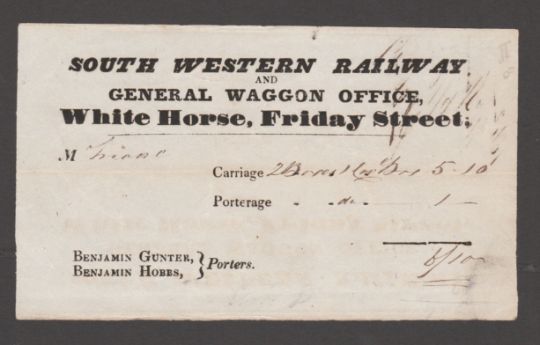 SOUTH WESTERN RAILWAY.
AND
GENERAL WAGGON OFFICE,
White Horse, Friday Street.
M
Carriage 2 Boxes 5-10
Porterage - do - 1-
6/10
BENJAMIN GUNTER,
BENJAMIN HOBBS, } Porters.